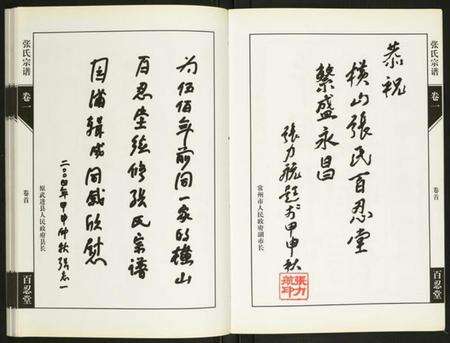 张氏宗谱
卷一
卷首
百忍堂
恭祝
横山張氏百忍堂
繁盛永昌
張力航题于甲申秋
常州市人民政府副市长
張力航印
为伍佰年前同一家的横山
百忍堂续修张氏宗谱
圆满辑成同感欣慰
二〇〇四年甲申仲秋張志一
原武进县人民政府县长
张氏宗谱
卷一
卷首
百忍堂